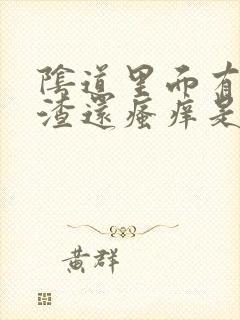 陰道里面有
渣還瘙痒是
黃群